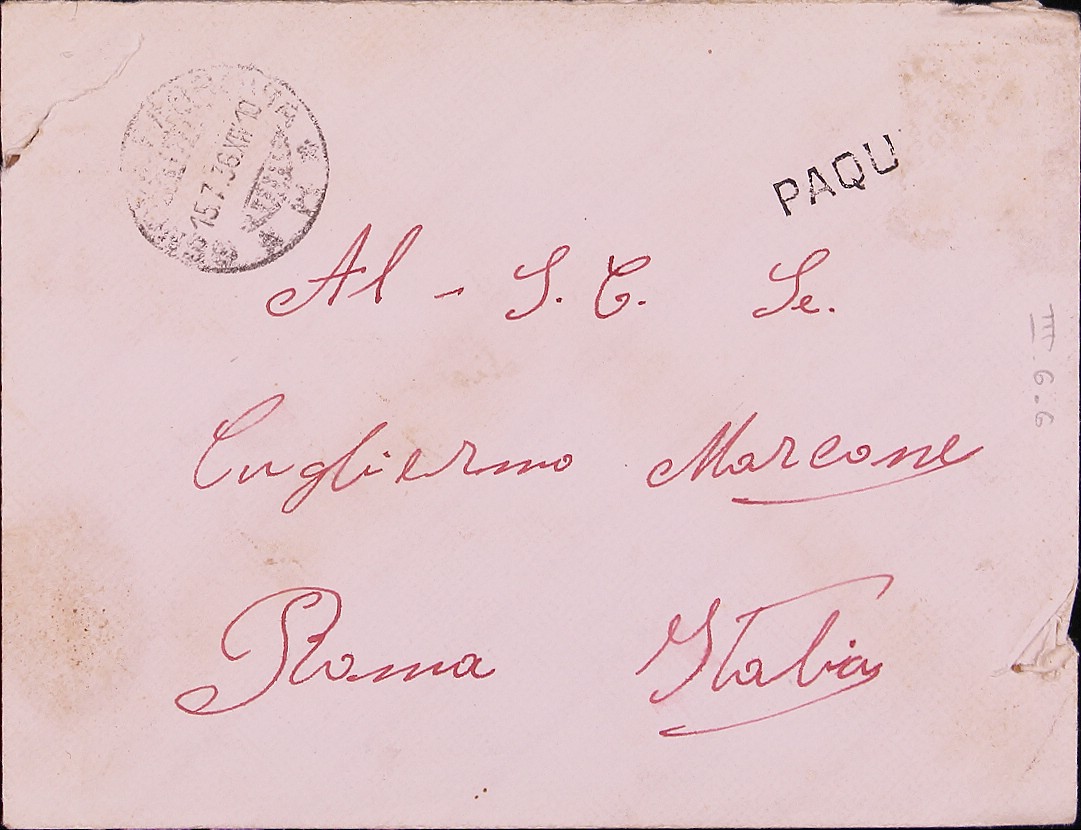 15.7.36 XIV 10
PAQU
Al - S. C. Se.
Cuglielmo Marcone
Roma Italia
III. G. G